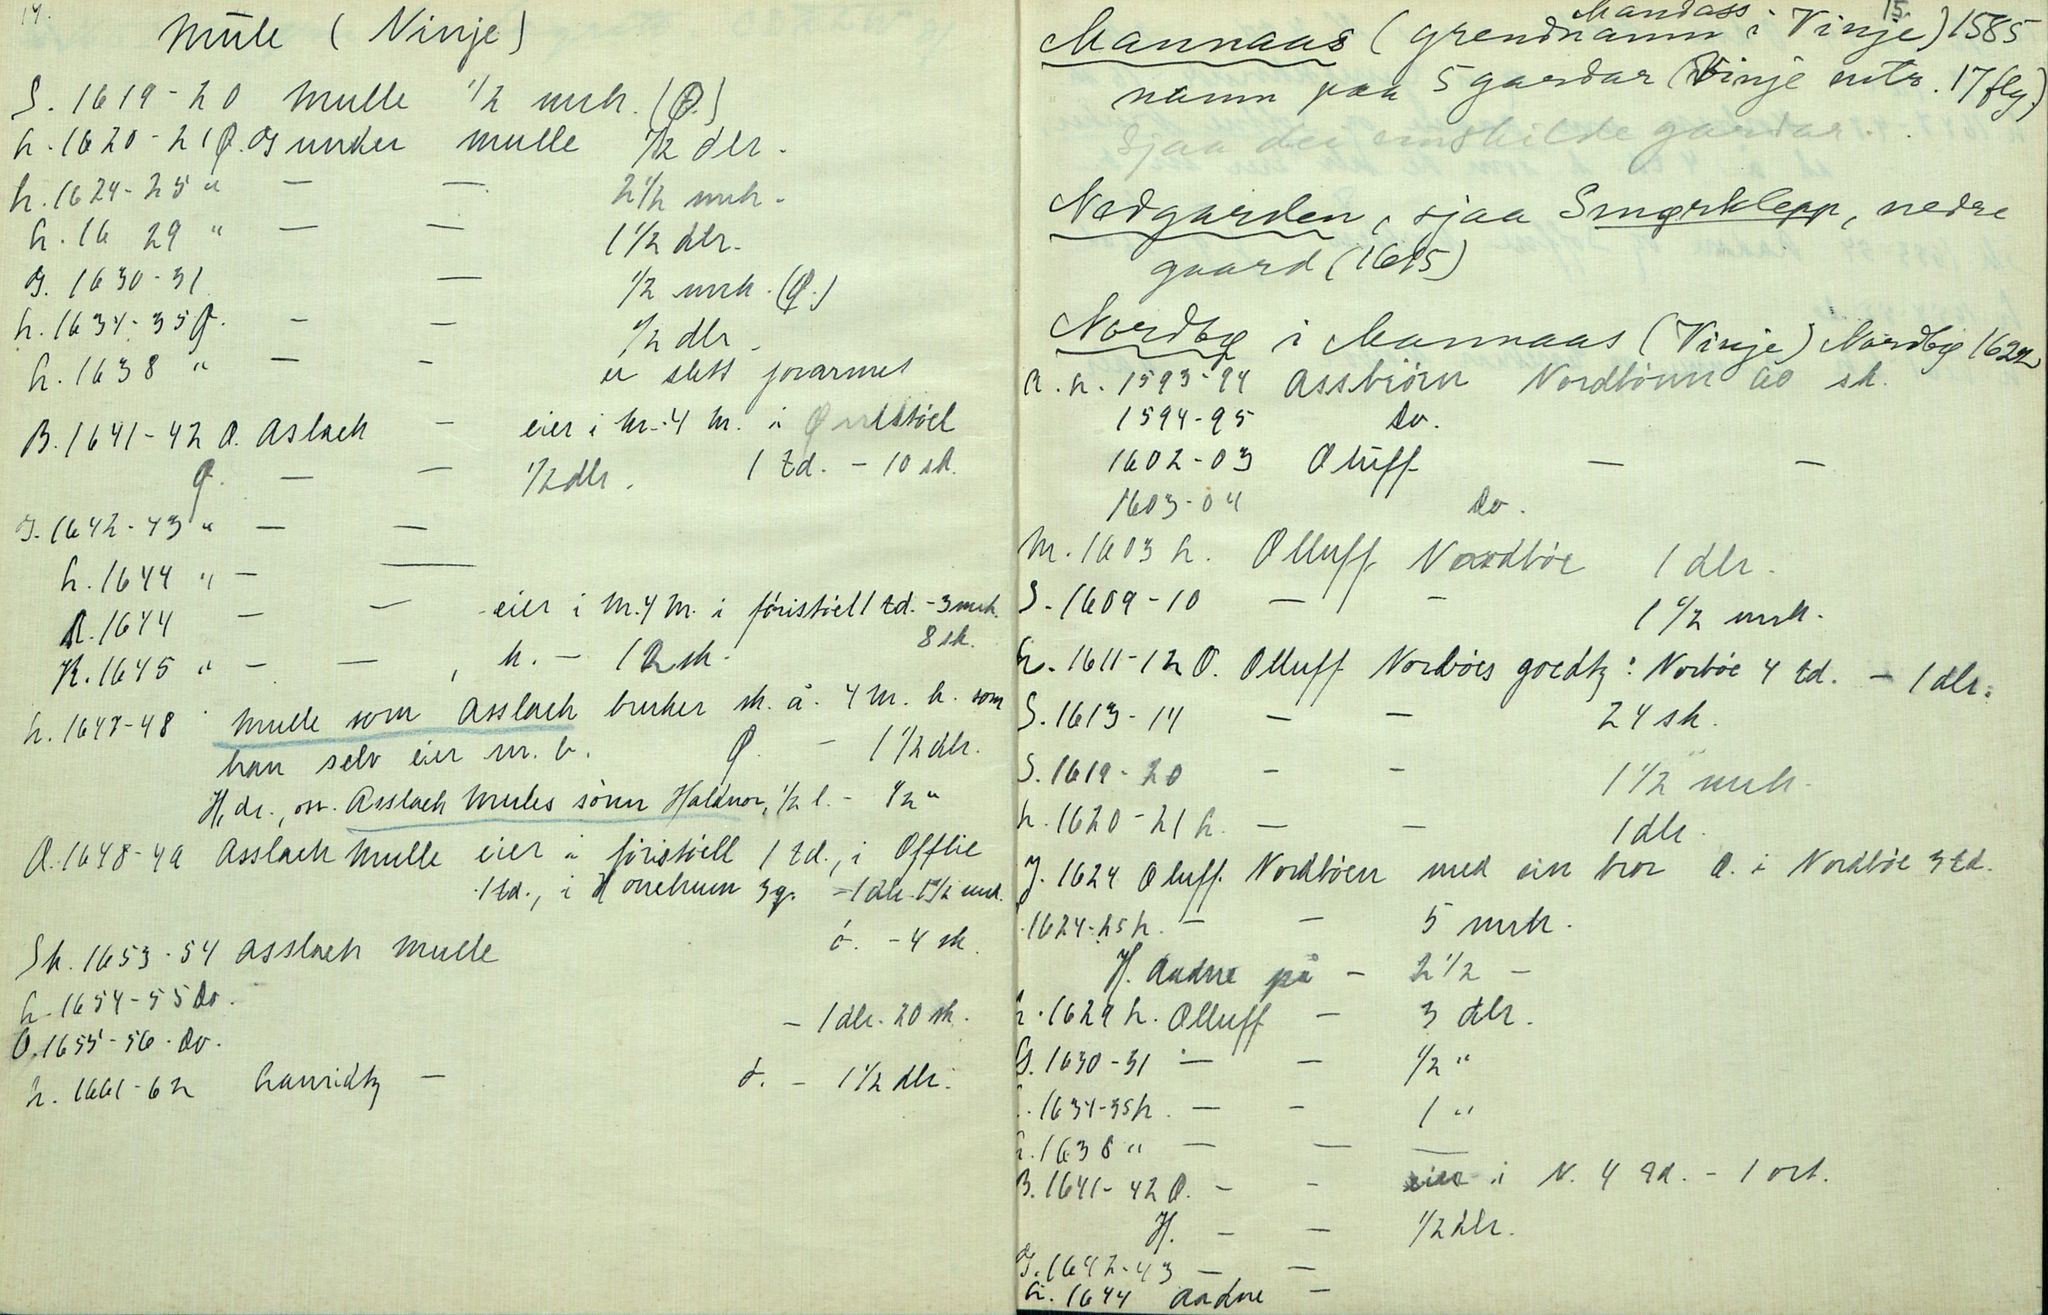 14.
Mule (Vinje)
S. 1619-20 Mulle 1/2 mrk. (Ø.)
L. 1620-21 Ø. Osunker Mulle 1/2 dlr.
L. 1624-25 " — — 2 1/2 mrk.
L. 1629 " — — 1 1/2 dlr.
G. 1630-31 — 1/2 mrk. (Ø.)
L. 1634-35 Ø. — — 1/2 dlr.
L. 1638 " — — er slett forarmet
B. 1641-42 O. Aslach — eier i M. 4 m. i stöel
Ø. — — 1/2 dlr. 1 td. - 10 sk.
G. 1642-43 " — —
L. 1644 " — —
R. 1644 — — eier i M. 4 m. i föristöell 1 td. - 3 mrk.
8 sk.
K. 1645 " — — , h. — 12 sk.
L. 1647-48 Mulle som Asslach bruker sk. å. 4 m. k. som
han selv eier m. b. Ø. — 1 1/2 dlr.
H, dr., on. Asslach Mules sönn Haldnor, 1/2 l. - 1/2 "
O. 1648-49 Asslach Mulle eier i föristöell 1 td., i Offlie
1 td., i Honetrum 3 g. = 1 dlr. 1 1/2 mrk.
Sk. 1653-54 Asslach Mulle ö. - 4 sk.
L. 1654-55 Do.
O. 1655-56. Do. — 1 dlr. 20 sk.
L. 1661-62 Lauridtz — ö. — 1 1/2 dlr.
15.
Mandass
Mannaas (grendnamn i Vinje) 1585
namn paa 5 gardar (Vinje mtr. 17 flg.)
Sjaa dei einskilde gardar.
Nedgarden, sjaa Smørklepp, nedre
gaard (1615)
Nordbø i Mannaas (Vinje) Nordbø 1622
A. L. 1593-94 Assbiörn Nordbönn sk.
1594-95 Do.
1602-03 Oluff — —
1603-04 Do.
M. 1603 h. Olluff Nordböe 1 dlr.
S. 1609-10 — — 1 1/2 mrk.
L. 1611-12 O. Olluff Norböes goedtz: Norböe 4 td. — 1 dlr.
S. 1613-14 — — 24 sk.
S. 1619-20 — — 1 1/2 mrk.
L. 1620-21 h. — — 1 dlr.
J. 1624 Oluff Nordböen med sin bror O. i Nordböe 3 td.
1624-25 h. — — 5 mrk.
H. Andne på — 2 1/2 —
L. 1629 h. Olluff — 3 dlr.
G. 1630-31 — — 1/2 "
L. 1634-35 h. — — 1 "
L. 1638 " — — —
B. 1641-42 O. — — eier i N. 4 td. - 1 ort.
H. — — 1/2 dlr.
G. 1642-43 — —
L. 1644 Andne —